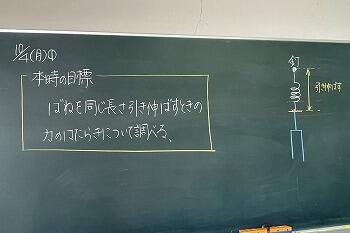 10/4(月)①
本時の目標
ばねを同じ長さ引き伸ばすときの
力のはたらきについて調べる、
釘
引き伸ばす